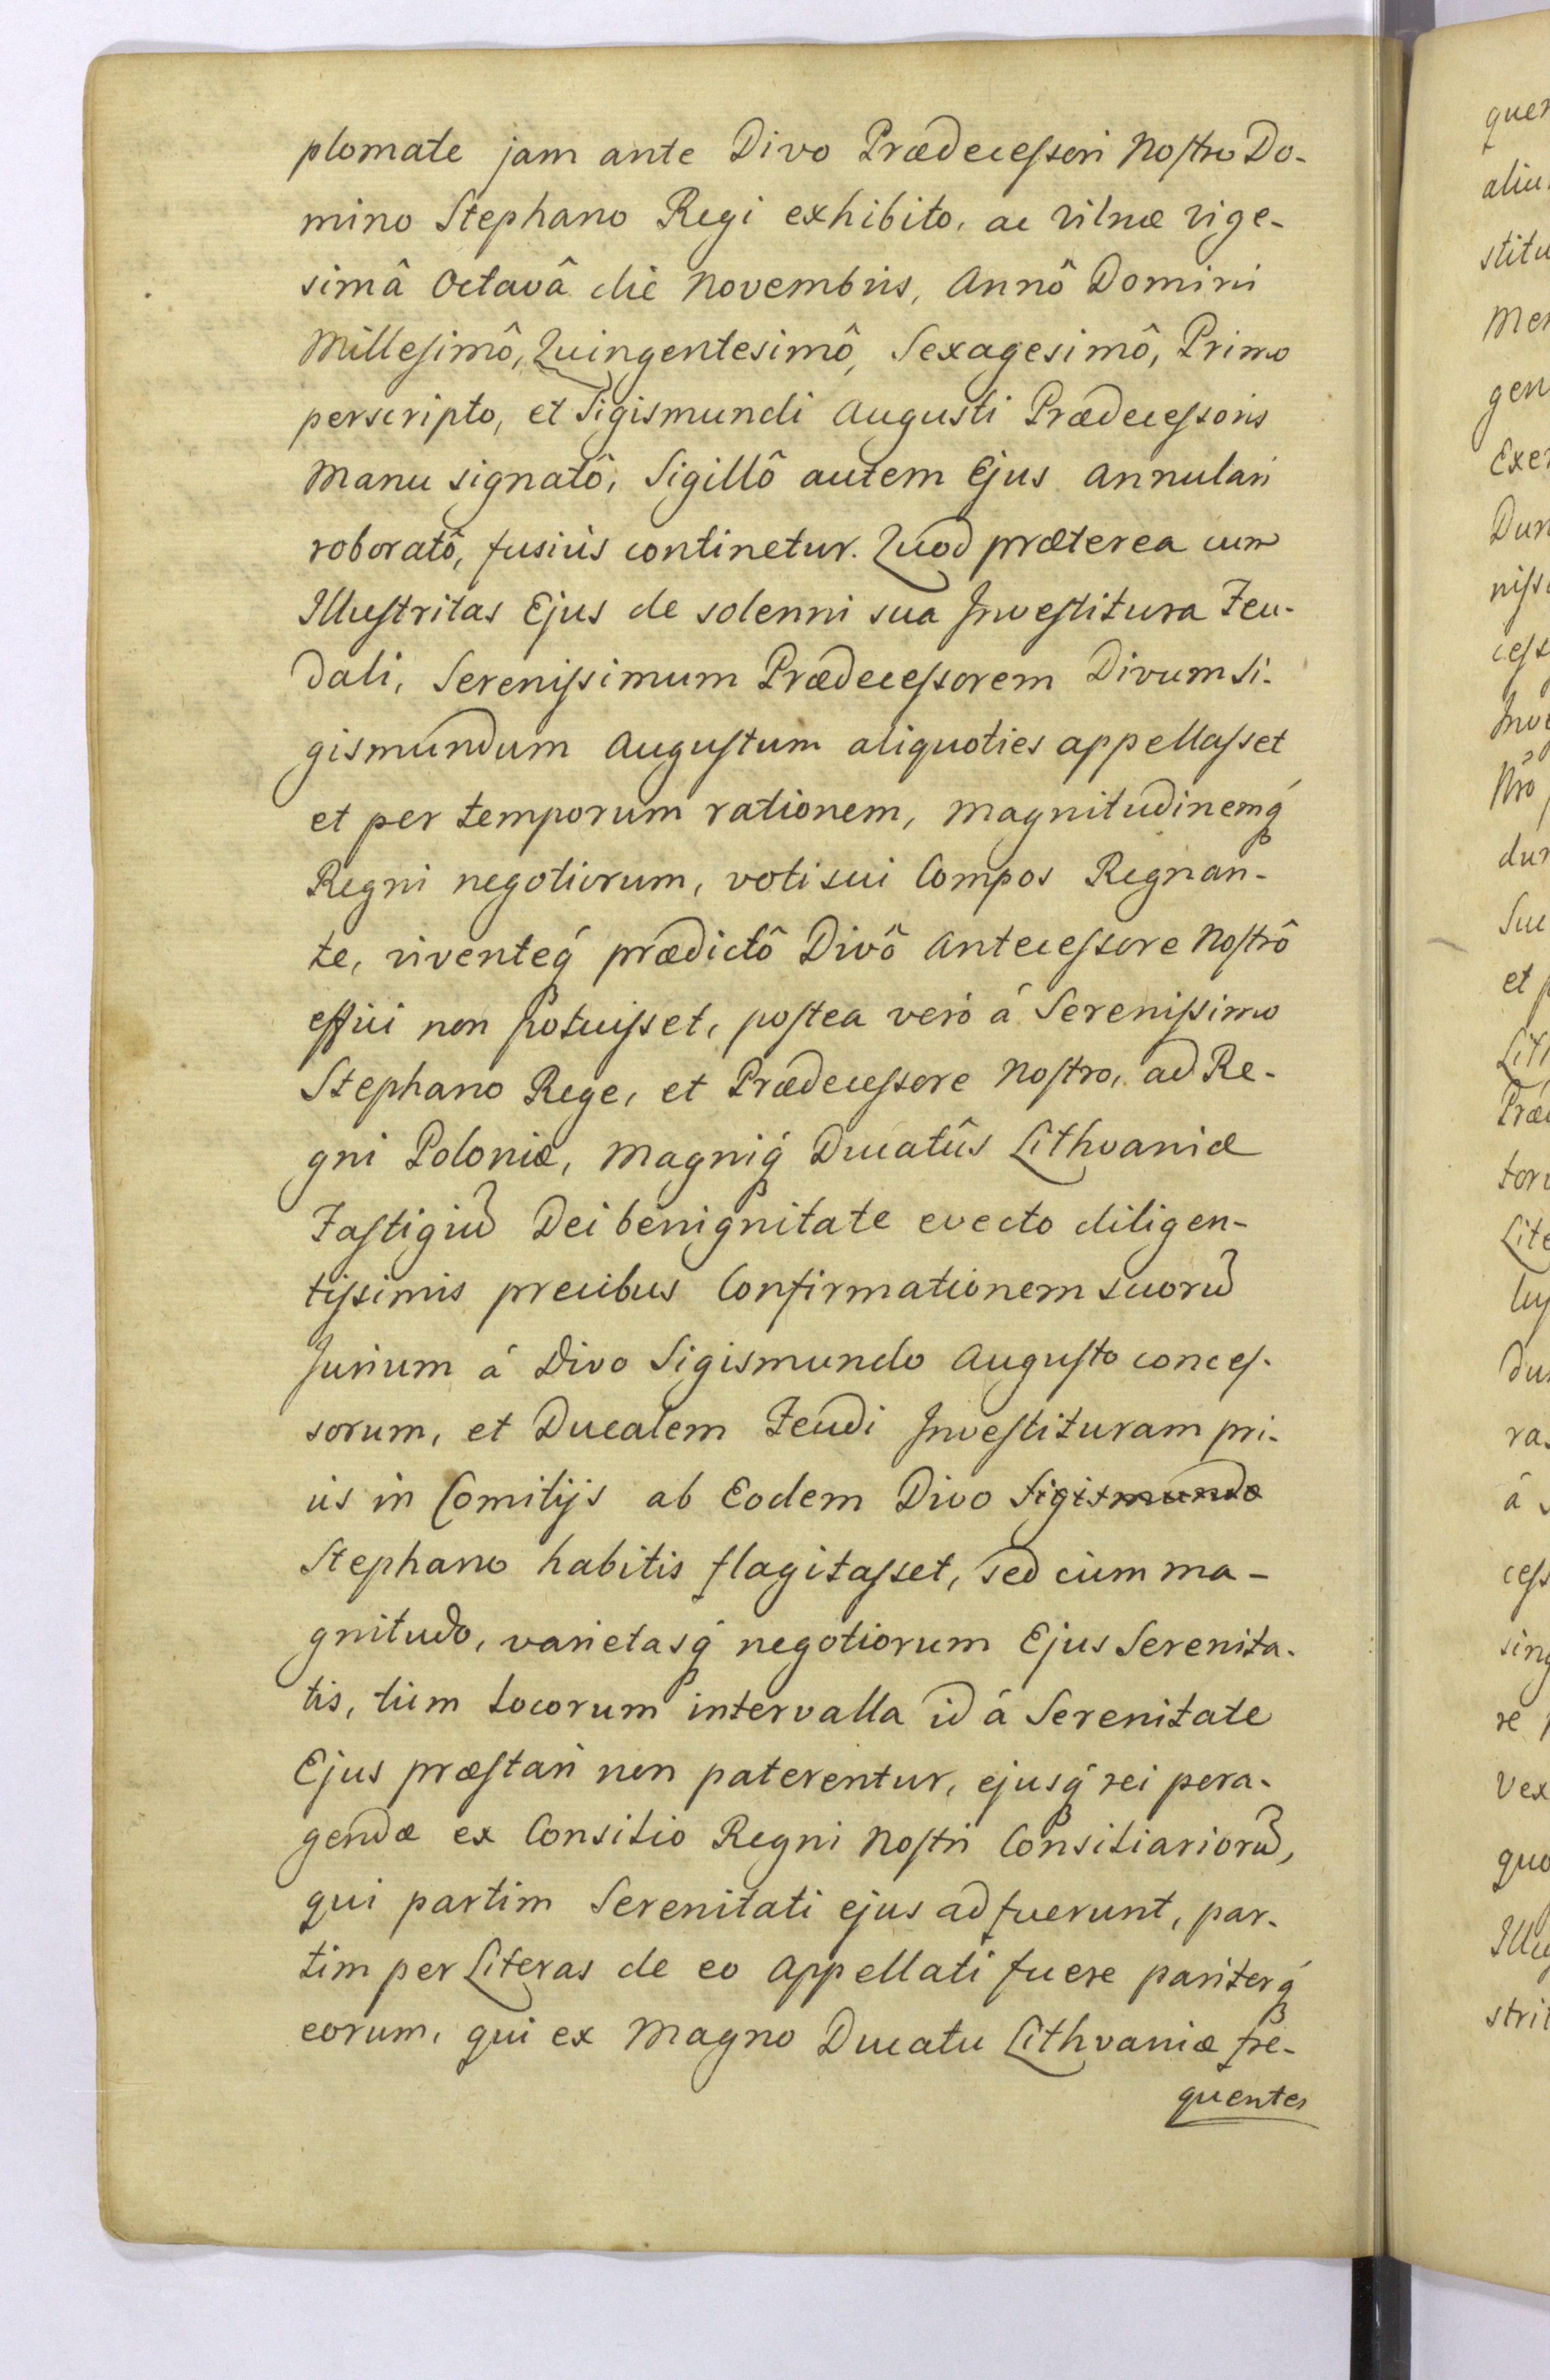 plomate jam ante Divo Prædecessori Nostro Do-
mino Stephano Regi exhibito, ac Vilnæ Vige-
simâ Octavâ diê Novembris, Annô Domini
Millesimô, Quingentesimô, Sexagesimô, Primo
perscripto, et Sigismundi Augusti Prædecessoris
Manu signatô, Sigillô autem Ejus annulari
roboratô, fusiùs continetur. Quod præterea cum
Illustritas Ejus de solenni sua Investitura Feu-
dali, Serenissimum Prædecessorem Divum Si-
gismundum Augustum aliquoties appellasset
et per temporum rationem, Magnitudinemq́
Regni negotiorum, voti sui Compos Regnan-
te, viventeq́ prædictô Divô Antecessore Nostrô
effici non potuisset, postea verò á Serenissimo
Stephano Rege, et Prædecessore Nostro, ad Re-
gni Poloniæ, Magniq́ Ducatûs Lithvaniæ
Fastigiu᷈ Dei benignitate evecto diligen-
tissimis precibus Confirmationem suoru᷈
Jurium á Divo Sigismundo Augusto conces-
sorum, et Ducalem Feudi Investituram pri-
ùs in Comitijs ab Eodem Divo Sigismundo
Stephano habitis flagitasset, sed cùm ma-
gnitudo, varietasq́ negotiorum Ejus Serenita-
tis, tùm Locorum intervalla id á Serenitate
Ejus præstari non paterentur, ejusq́ rei pera-
gendæ ex Consilio Regni Nostri Consiliarioru᷈,
qui partim Serenitati ejus adfuerunt, par-
tim per Literas de eo appellati fuere pariterq́
eorum, qui ex Magno Ducatu Lithvaniæ fre-
quentes
quen
aliu
stitu
Mer
gen
Exer
Dun
niss
cess
Inve
Nrô
dur
Suc
et p
Lith
Præd
toru
Lite
dur
ra
á
cess
sing
re
Vex
quo
Illu
strit